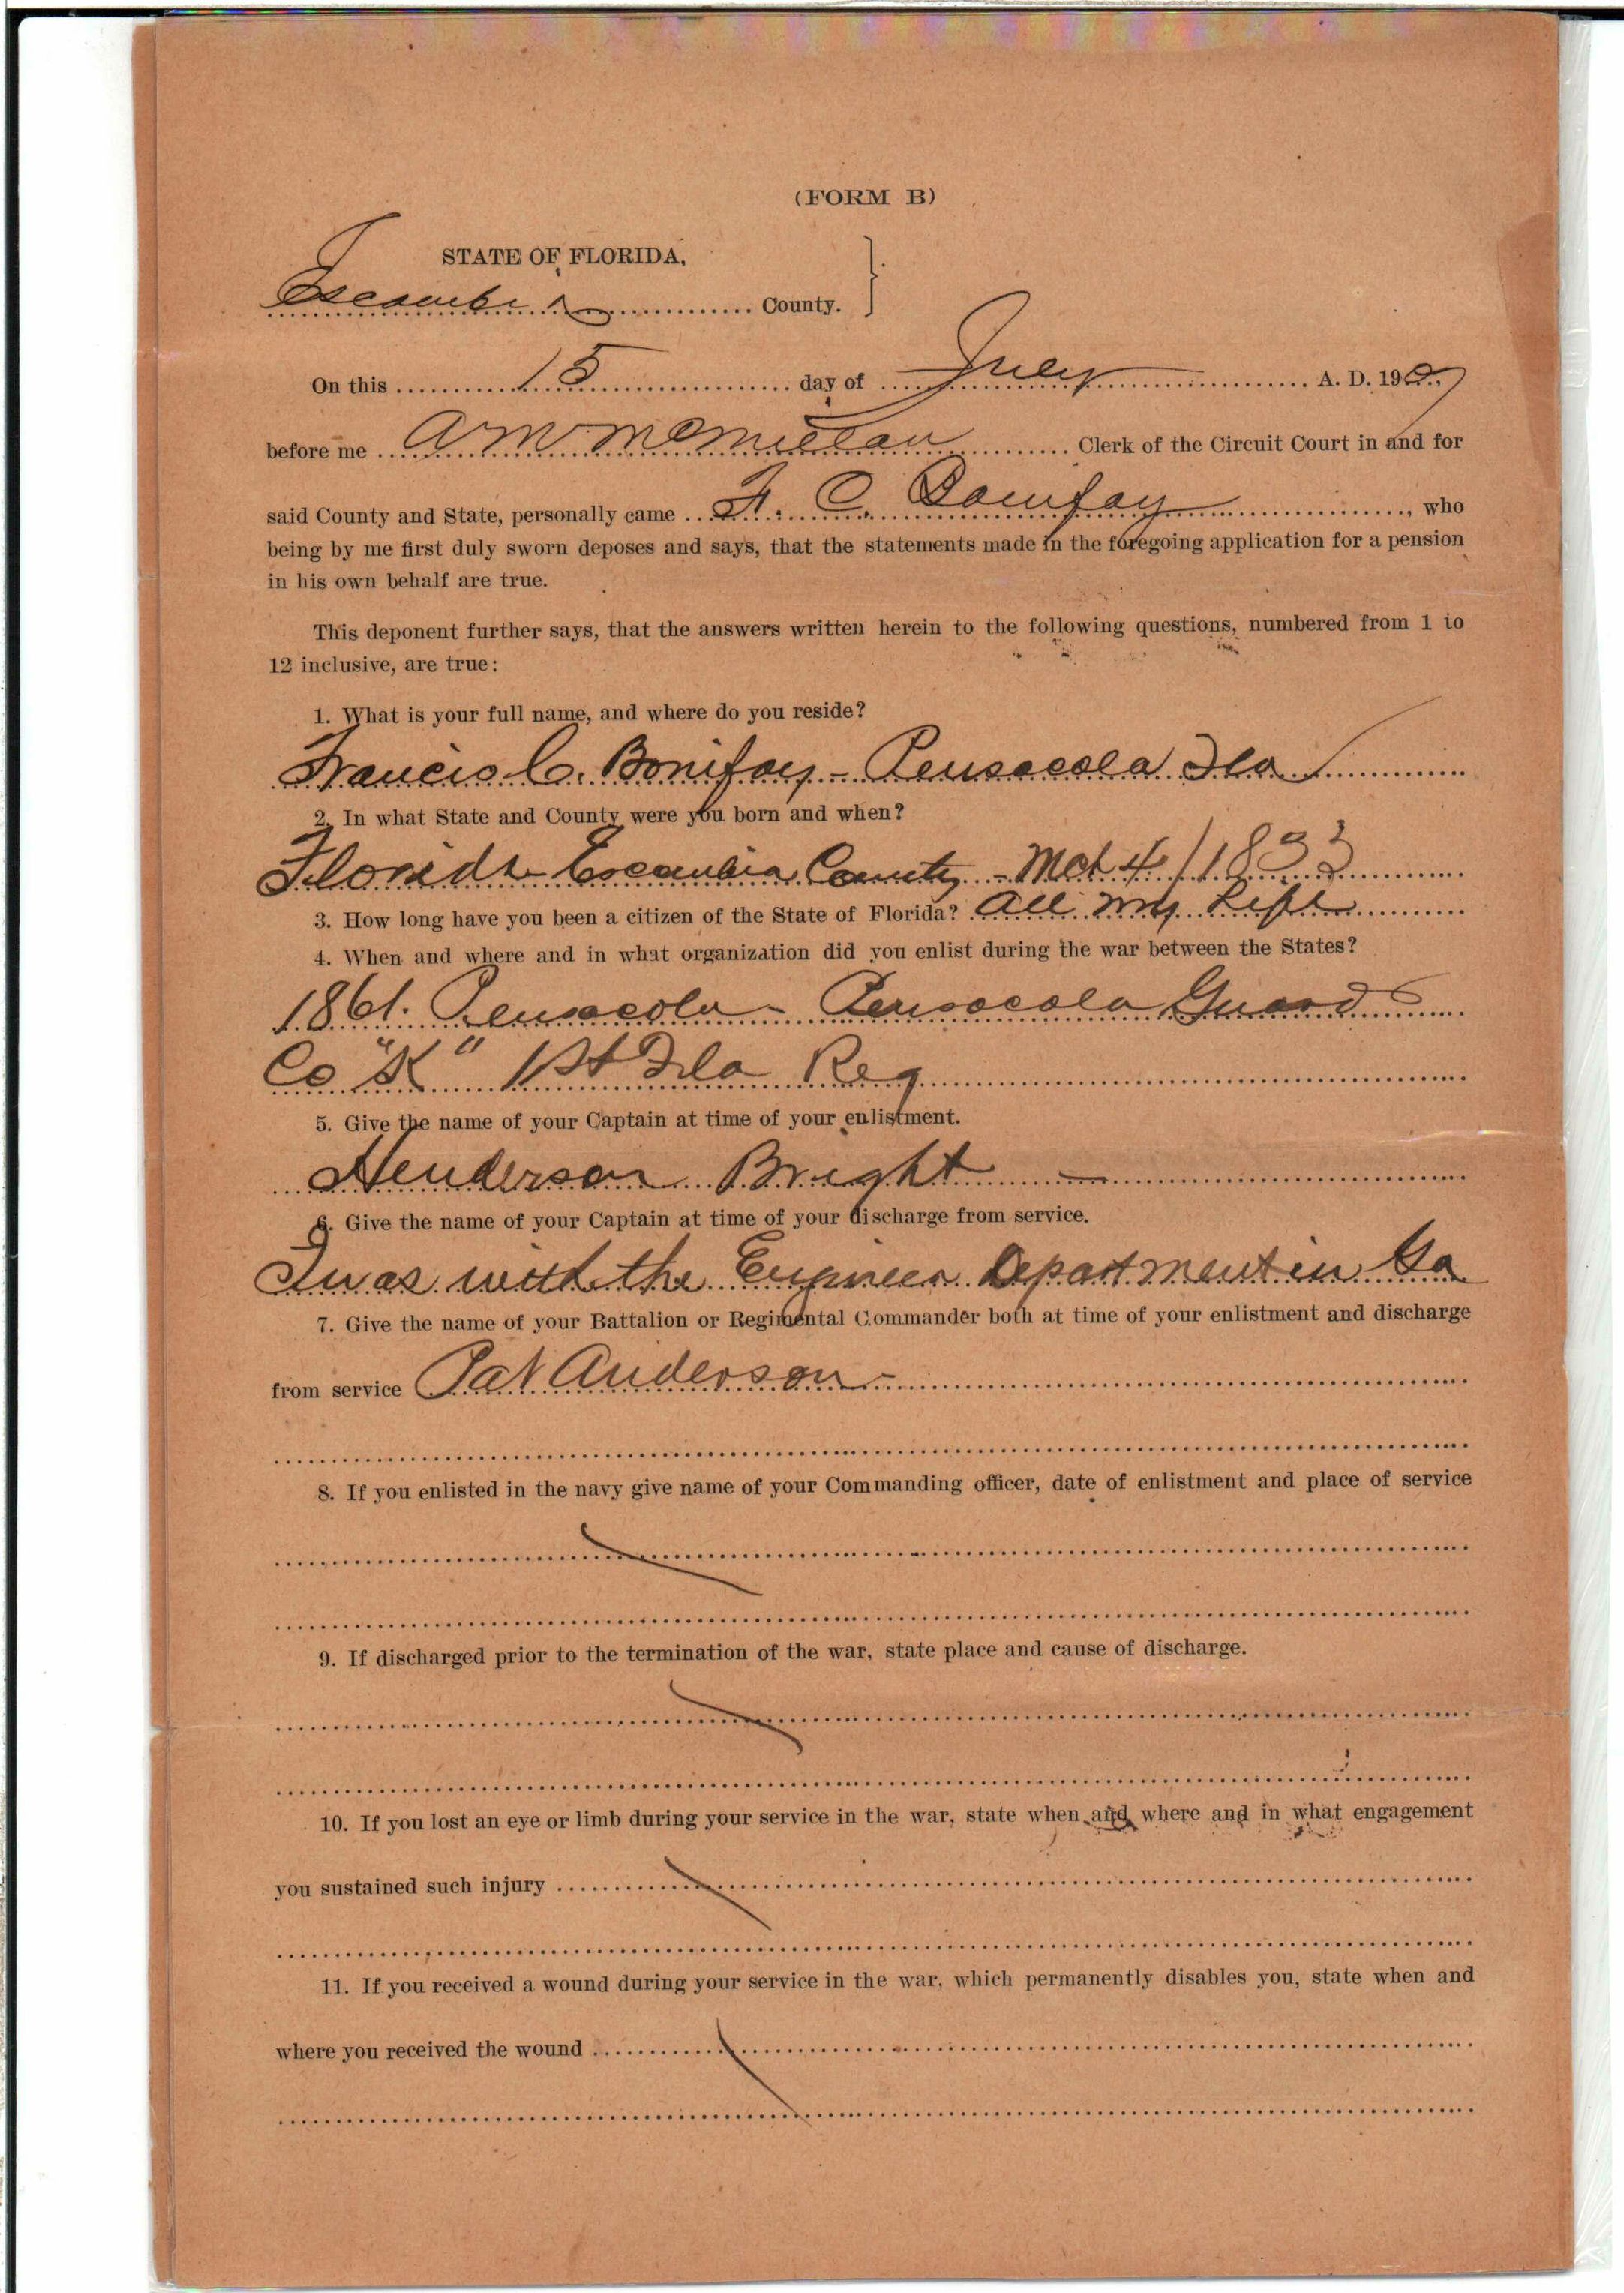 (FORM B)
STATE OF FLORIDA,
Escambia County.
On this 15 day of July A. D. 190
before me A M McMillan Clerk of the Circuit Court in and for
said County and State, personally came F. C. Bonifay, who
being by me first duly sworn deposes and says, that the statements made in the foregoing application for a pension
in his own behalf are true.
This deponent further says, that the answers written herein to the following questions, numbered from 1 to
12 inclusive, are true:
1. What is your full name, and where do you reside?
Francis C. Bonifay - Pensacola Fla
2. In what State and County were you born and when?
Florida Escambia County - Mch 4 / 1833
3. How long have you been a citizen of the State of Florida? All my Life
4. When and where and in what organization did you enlist during the war between the States?
1861. Pensacola - Pensacola Guards
Co "K" 1st Fla Reg
5. Give the name of your Captain at time of your enlistment.
Henderson Bright -
6. Give the name of your Captain at time of your discharge from service.
I was with the Engineer Department in Ga
7. Give the name of your Battalion or Regimental Commander both at time of your enlistment and discharge
from service Pat Anderson -
8. If you enlisted in the navy give name of your Commanding officer, date of enlistment and place of service
9. If discharged prior to the termination of the war, state place and cause of discharge.
10. If you lost an eye or limb during your service in the war, state when and where and in what engagement
you sustained such injury
11. If you received a wound during your service in the war, which permanently disables you, state when and
where you received the wound